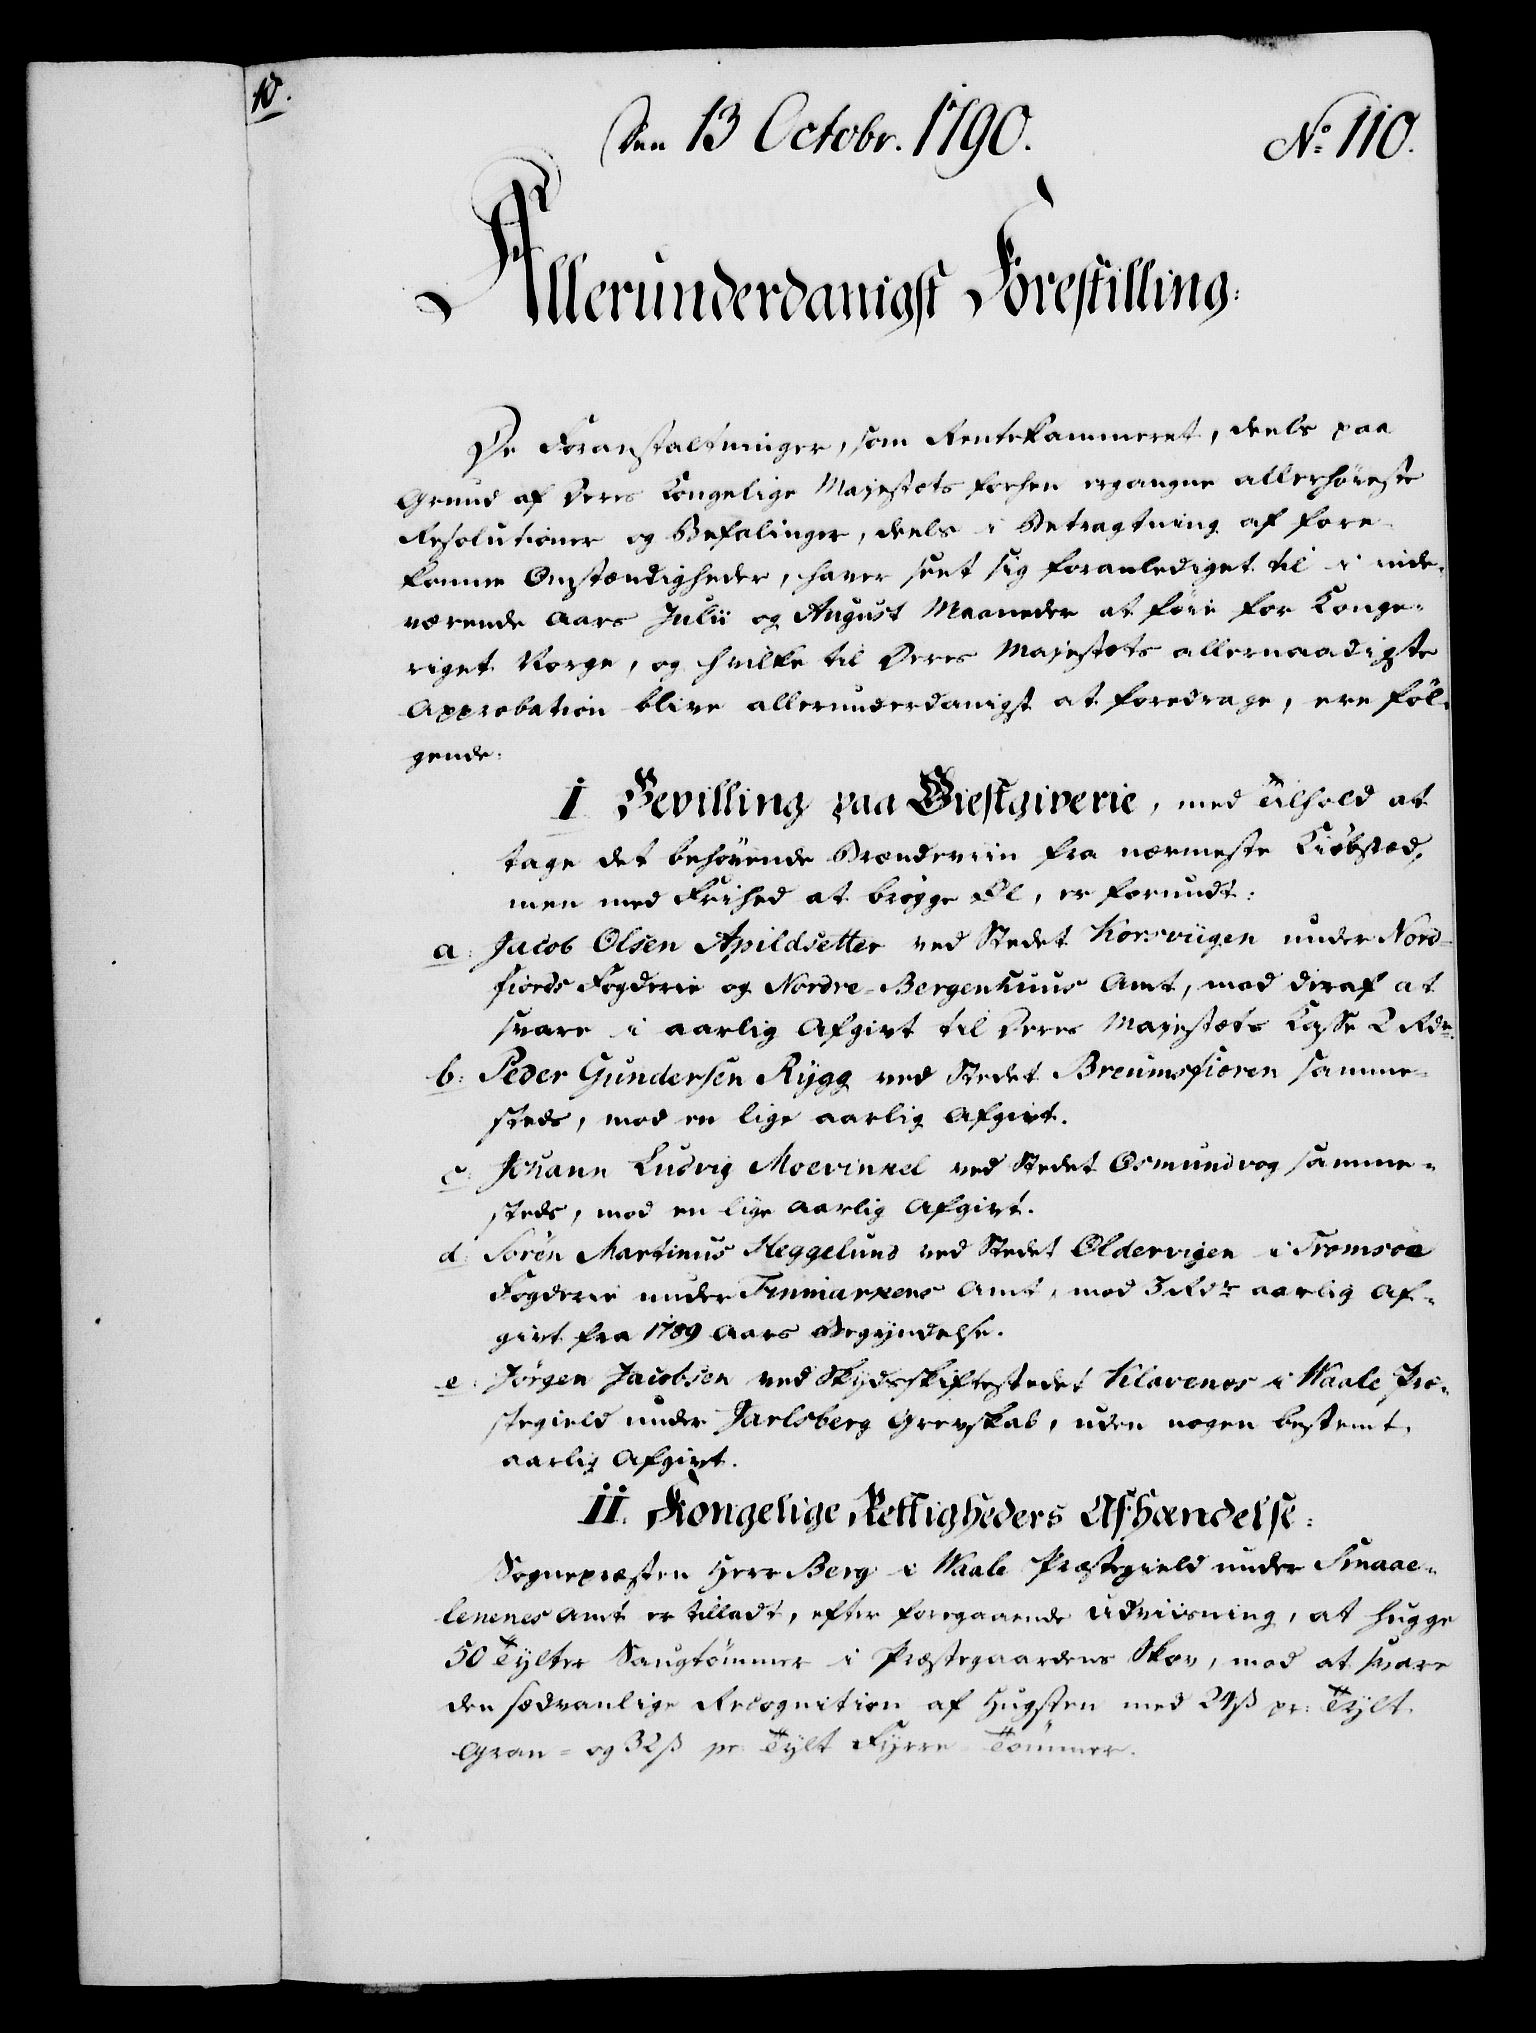 10.
Den 13 Octobr. 1790.
No: 110.
Allerunderdanigst Forestilling:
De Foranstaltninger, som Rentekammeret, deels paa
Grund af Deres Kongelige Majestets forhen ergangne allerhöieste
Resolutioner og Befalinger, deels i Betragtning af fore-
komne Omstændigheder, haver seet sig foranlediget til i inde-
værende Aars Julii og August Maaneder at föie for Konge-
riget Norge, og hvilke til Deres Majestets allernaadigste
Approbation blive allerunderdanigst at foredrage, ere föl-
gende:
I Bevilling paa Giestgiverie, med Tilhold at
tage det behövende Brændeviin fra nærmeste Kiöbstæd,
men med Frihed at brygge Öl, er forundt:
a: Jacob Olsen Apildsetter ved Stedet Korsviigen under Nord-
fiords Fogderie og Nordre-Bergenhuus Amt, mod deraf at
svare i aarlig Afgivt til Deres Majestets Kasse 2 Rdr.
b: Peder Gundersen Rygg ved Stedet Breumsfioren samme-
steds, mod en lige aarlig Afgivt.
c: Johann Ludvig Moevinkel ved Stedet Osmundvog samme-
steds, mod en lige aarlig Afgivt.
d: Sorën Martinus Heggelund ved Stedet Oldervigen i Tromsöe
Fogderie under Finmarkens Amt, mod 3 Rdr aarlig Af-
givt fra 1789 Aars Begyndelse.
e: Jörgen Jacobsen ved Skydsskiftestedet Klavenes i Waale Præ-
stegield under Jarlsberg Grevskab, uden nogen bestemt
aarlig Afgivt.
II. Kongelige Rettigheders Afhændelse:
Sognepræsten Herr Berg i Waale Præstegield under Smaae-
lenenes Amt er tilladt, efter foregaaende Udviisning, at hugge
50 Tylter Saugtömmer i Præstegaardens Skov, mod at svare
den sædvanlige Recognition af Hugsten med 24ß pr: Tylt
Gran- og 32ß pr: Tylt Fyrre-Tömmer.